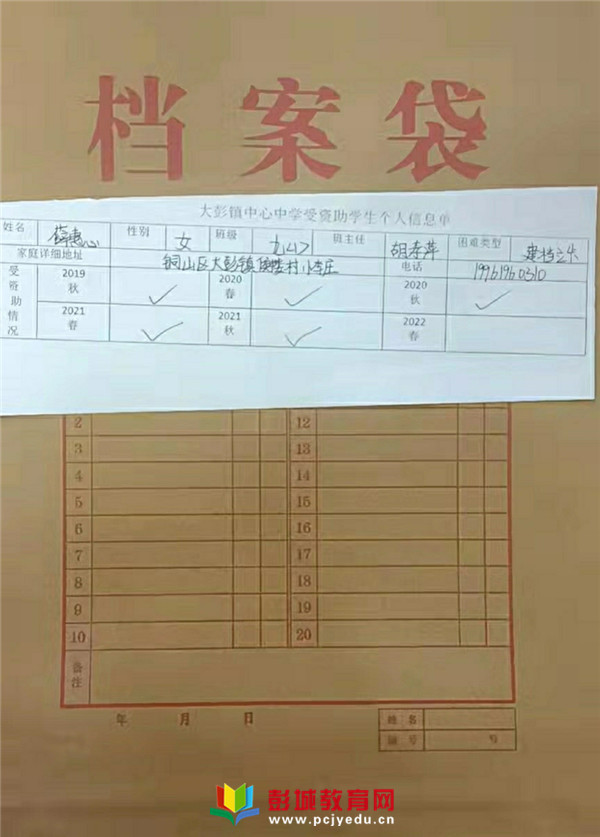 档案袋
大彭镇中心中学受资助学生个人信息单
姓名 性别 女 班级 九(4) 班主任 胡孝萍 困难类型 建档立卡
家庭详细地址 铜山区大彭镇 村小李庄 电话
受资助情况 2019秋 ✓ 2020春 ✓ 2020秋 ✓
2021春 ✓ 2021秋 ✓ 2022春
2 12
3 13
4 14
5 15
6 16
7 17
8 18
9 19
10 20
备注
年 月 日
姓名
编号 号
彭城教育网
www.pcjyedu.cn